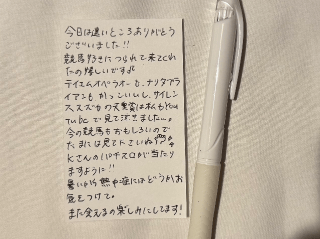 今日は遠いところありがとう
ございました!!
競馬好きにつられて来てくれ
たの嬉しいです♪
テイエムオペラオーと、ナリタブラ
イアンもかっこいいし、サイレン
ススズカの天皇賞は私もYou
tubeで見て泣きました…。
今の競馬もおもしろいので
たまには見て下さいね
Kさんのパチスロが当たり
ますように!!
暑いから熱中症にはどうかお
気をつけて。
また会えるの楽しみにしてます!